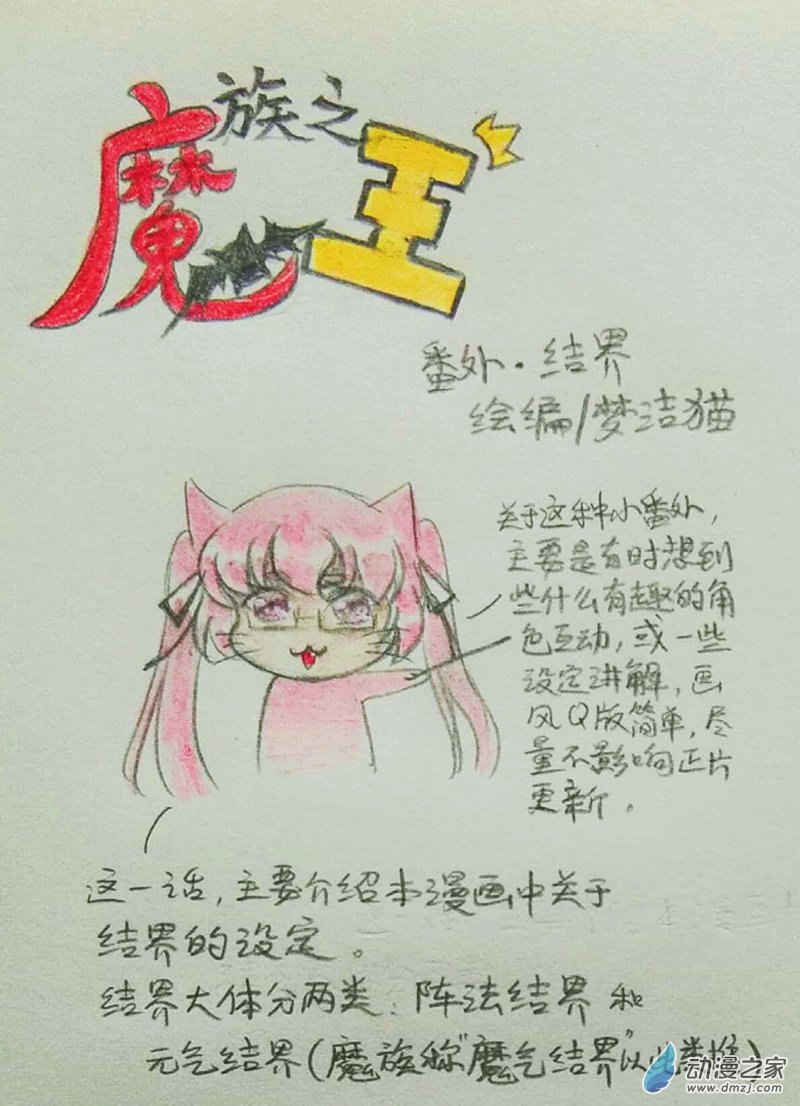 魔族之王
番外·结界
绘编/梦洁猫
关于这种小番外,
主要是有时想到
些什么有趣的角
色互动,或一些
设定讲解,画
风Q版简单,尽
量不影响正片
更新。
这一话,主要介绍本漫画中关于
结界的设定。
结界大体分两类:阵法结界和
元气结界(魔族称"魔气结界"以此类推)
动漫之家
www.dmzj.com